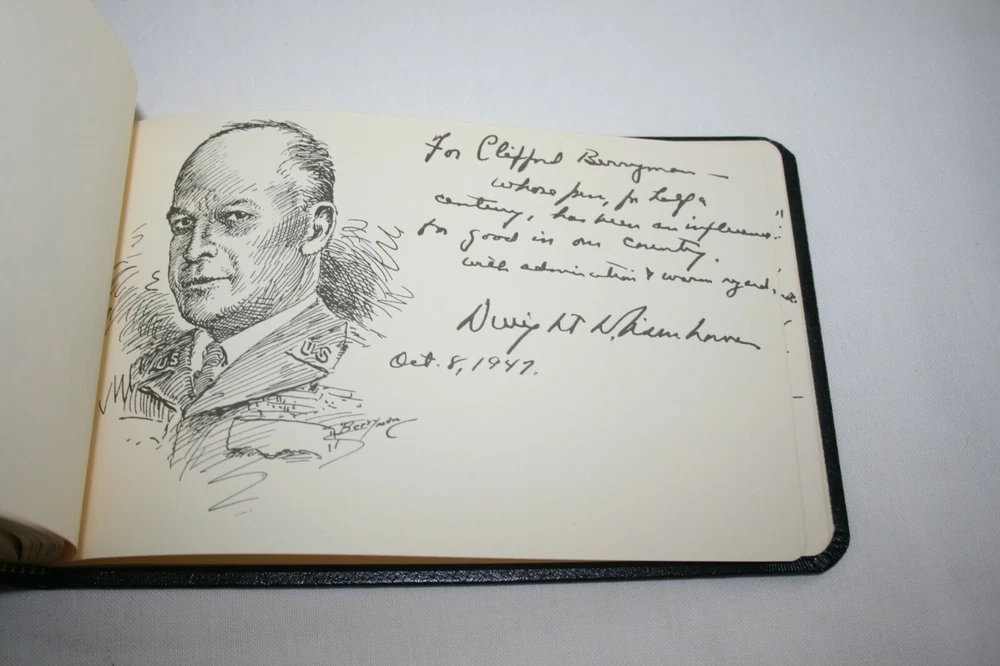 For Clifford Berryman –
whose pen, for half a
century, has been an influence
for good in our country.
with admiration & warm regard,
Dwight D. Eisenhower
Oct. 8, 1947.
US
US
Berryman